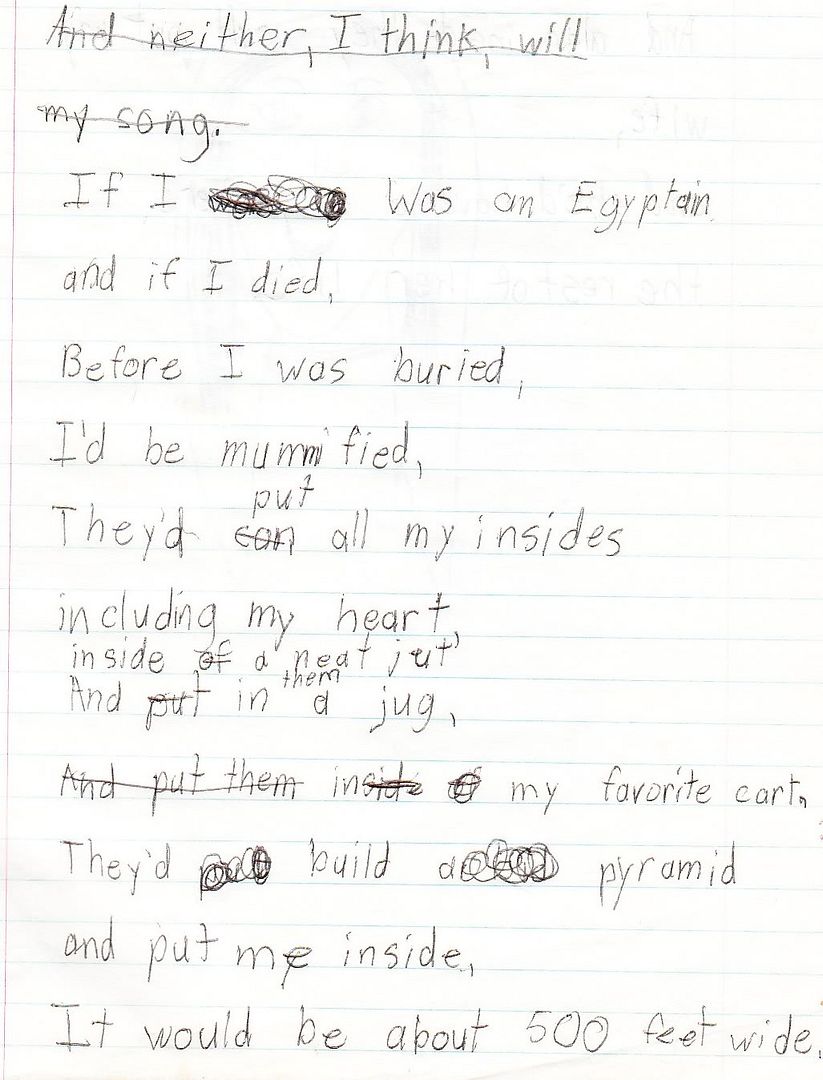 And neither, I think, will
my song.
If I was an Egyptain
and if I died,
Before I was buried,
I'd be mummified,
put
They'd can all my insides
including my heart,
inside of a neat jut
them
And put in a jug,
And put them inside of my favorite cart.
They'd build a pyramid
and put me inside,
It would be about 500 feet wide.